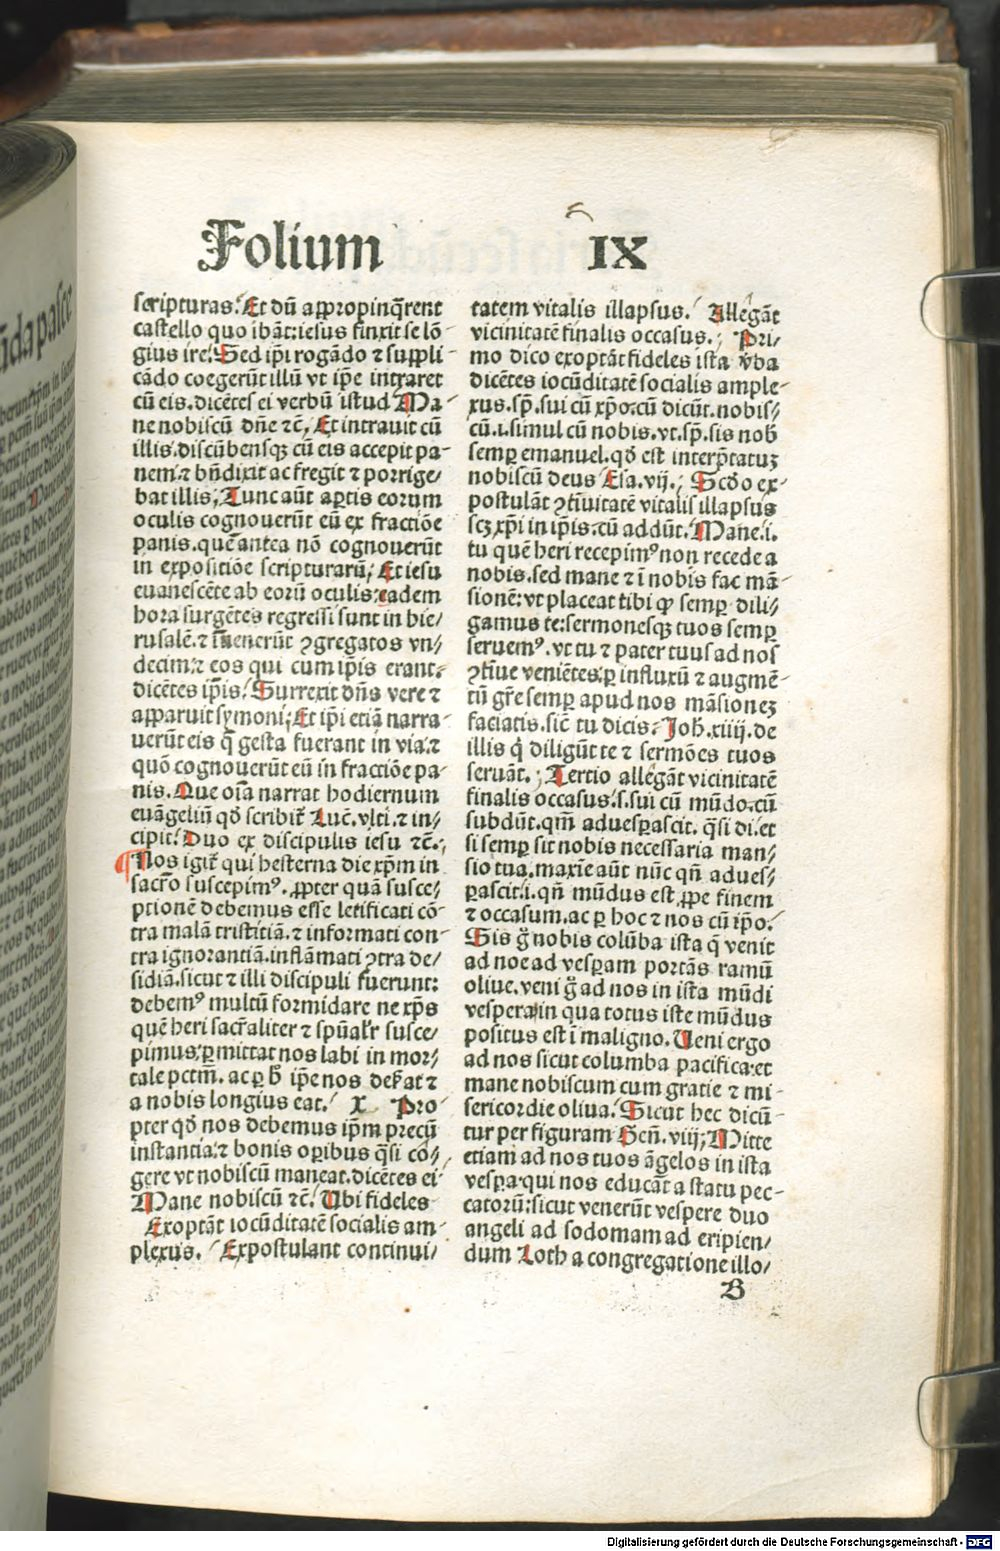 Folium IX
scripturas. Et dū appropinq̄rent
castello quo ibāt: iesus finxit se lō-
gius ire. Sed ip̄i rogādo ⁊ suppli-
cādo coegerūt illū vt ip̄e intraret
cū eis. dicētes ei verbū istud Ma-
ne nobiscū dn̄e ⁊c̄. Et intrauit cū
illis. discūbensq̄ꝫ cū eis accepit pa-
nem. ⁊ bn̄dixit ac fregit ⁊ porrige/
bat illis. Tunc aūt apertis eorum
oculis cognouerūt eū ex fractiōe
panis. quē antea nō cognouerūt
in expositiōe scripturarū. Et iesu
euanescēte ab eorū oculis: eadem
hora surgētes regressi sunt in hie/
rusalē. ⁊ īuenerūt ꝯgregatos vn/
decim: ⁊ eos qui cum ip̄is erant.
dicētes ip̄is. Surrexit dn̄s vere ⁊
apparuit symoni. Et ip̄i etiā narra-
uerūt eis q̄ gesta fuerant in via: ⁊
quō cognouerūt eū in fractiōe pa-
nis. Que oīa narrat hodiernum
euāgeliū qd̄ scribit̄ Luc̄. vlti. ⁊ in-
cipit. Duo ex discipulis iesu ⁊c̄.
Nos igit̄ qui hesterna die xp̄m in
sacr̄o suscepimꝰ. ꝓpter quā susce/
ptionē debemus esse letificati cō-
tra malā tristitiā. ⁊ informati con-
tra ignorantiā. inflāmati ꝯtra de/
sidiā. sicut ⁊ illi discipuli fuerunt:
debemꝰ multū formidare ne xp̄s
quē heri sacr̄aliter ⁊ spūalr̄ susce/
pimus: ꝑmittat nos labi in mor/
tale pctm̄. ac ꝑ h̄ ip̄e nos
a nobis longius eat. x Pro
pter qd̄ nos debemus ip̄m precū
instantia: ⁊ bonis oꝑibus q̄si cō/
gere vt nobiscū maneat. dicētes ei
Mane nobiscū ⁊c̄. Ubi fideles
Exoptāt iocūditatē socialis am-
plexus. Expostulant continui/
tatem vitalis illapsus. Allegāt
vicinitatē finalis occasus. Pri/
mo dico exoptāt fideles ista v̄ba
dicētes iocūditatē socialis ample-
xus. sp̄. sui cū xp̄o. cū dicūt. nobis/
cū. i. simul cū nobis. vt. sp̄. sis nob̄
semꝑ emanuel. qd̄ est interp̄tatuꝫ
nobiscū deus Esa. vij. Scd̄o ex-
postulāt ꝯtīuitatē vitalis illapsus
scꝫ xp̄i in ip̄is. cū addūt. Mane. i.
tu quē heri recepimꝰ non recede a
nobis. sed mane ⁊ ī nobis fac mā-
sionē: vt placeat tibi ꝙ semꝑ dili/
gamus te: sermonesqꝫ tuos semꝑ
seruemꝰ. vt tu ⁊ pater tuus ad nos
ꝯtīue veniētes: ꝑ influxū ⁊ augmē-
tū gr̄e semꝑ apud nos māsioneꝫ
faciatis. sic̄ tu dicis. Joh̄. xiiij. de
illis q̇ diligūt te ⁊ sermōes tuos
seruāt. Tertio allegāt vicinitatē
finalis occasus. s. sui cū mūdo. cū
subdūt. qm̄ aduesperascit. q̄si di. et
si semꝑ sit nobis necessaria man/
sio tua. maxīe aūt nūc qn̄ adues/
perascit. i. qn̄ mūdus est ꝓpe finem
⁊ occasum. ac ꝑ hoc ⁊ nos cū ip̄o.
Sis g̊ nobis colūba ista q̄ venit
ad noe ad vesꝑam portās ramū
oliue. veni g̊ ad nos in ista mūdi
vespera in qua totus iste mūdus
positus est ī maligno. Ueni ergo
ad nos sicut columba pacifica: et
mane nobiscum cum gratie ⁊ mi-
sericordie oliua. Sicut hec dicū-
tur per figuram Gen̄. viij. Mitte
etiam ad nos tuos āgelos in ista
vesꝑa. qui nos educāt a statu pec-
catorū: sicut venerūt vespere duo
angeli ad sodomam ad eripien/
dum Loth a congregatione illo/
B
Digitalisierung gefördert durch die Deutsche Forschungsgemeinschaft - DFG